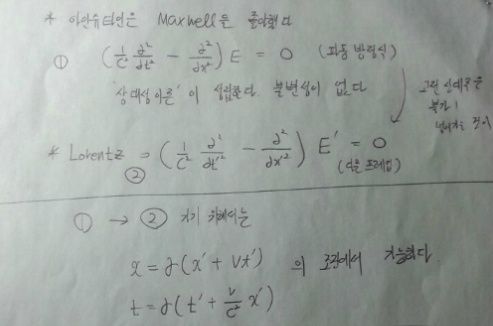 * 아인슈타인은 Maxwell을 좋아했다
① (1/c² ∂²/∂t² − ∂²/∂x²) E = 0 (파동 방정식)
'상대성이론'이 성립한다. 불변성이 없다
* Lorentz = (1/c² ∂²/∂t'² − ∂²/∂x'²) E' = 0
② (다음 프레임)
① → ② 가기 위해서는
x = γ(x' + Vt') 의 조건에서 가능하다.
t = γ(t' + v/c² x')